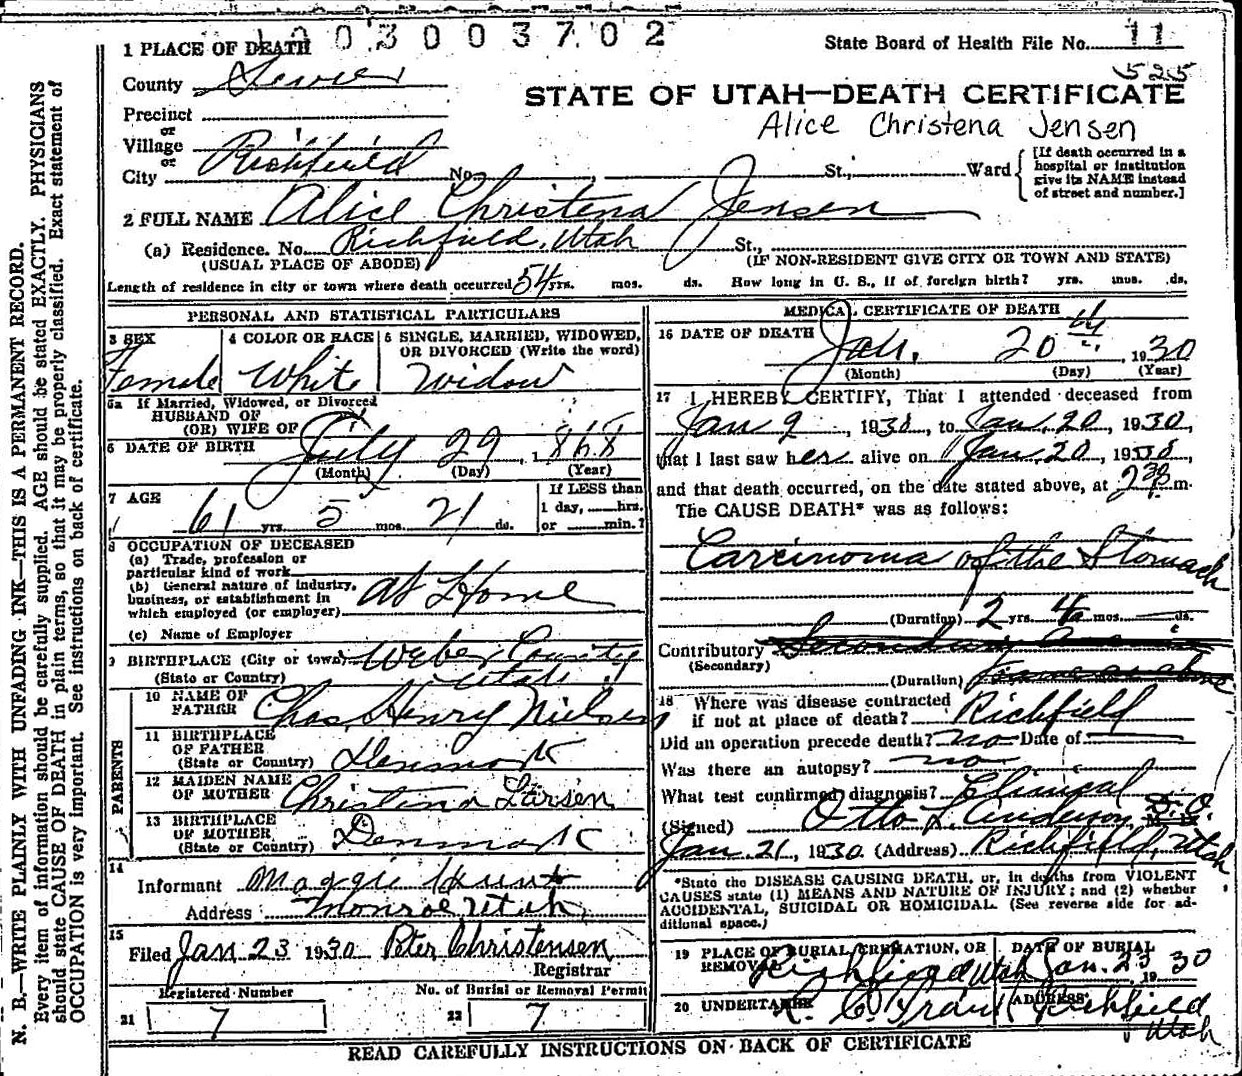 1003003702
1 PLACE OF DEATH
State Board of Health File No. 11
525
County Sevier
STATE OF UTAH—DEATH CERTIFICATE
Precinct
Alice Christena Jensen
or
Village
or
City Richfield No. St.; Ward
[If death occurred in a hospital or institution give its NAME instead of street and number.]
2 FULL NAME Alice Christena Jensen
(a) Residence. No. Richfield, Utah St.,
(USUAL PLACE OF ABODE) (IF NON-RESIDENT GIVE CITY OR TOWN AND STATE)
Length of residence in city or town where death occurred 54 yrs. mos. ds. How long in U. S., if of foreign birth? yrs. mos. ds.
PERSONAL AND STATISTICAL PARTICULARS
3 SEX Female
4 COLOR OR RACE White
5 SINGLE, MARRIED, WIDOWED, OR DIVORCED (Write the word) Widow
5a If Married, Widowed, or Divorced
HUSBAND OF
(OR) WIFE OF
6 DATE OF BIRTH July 29, 1868
(Month) (Day) (Year)
7 AGE 61 yrs. 5 mos. 21 ds.
If LESS than
1 day, hrs.
or min.?
8 OCCUPATION OF DECEASED
(a) Trade, profession or
particular kind of work
(b) General nature of industry,
business, or establishment in
which employed (or employer) At Home
(c) Name of Employer
9 BIRTHPLACE (City or town) Weber County
(State or Country) Utah
PARENTS
10 NAME OF FATHER Chas Henry Nielsen
11 BIRTHPLACE OF FATHER
(State or Country) Denmark
12 MAIDEN NAME OF MOTHER Christina Larsen
13 BIRTHPLACE OF MOTHER
(State or Country) Denmark
14
Informant Maggie Hunt
Address Monroe Utah
15
Filed Jan 23 1930 Peter Christensen
Registrar
Registered Number
21 7
No. of Burial or Removal Permit
22 7
MEDICAL CERTIFICATE OF DEATH
16 DATE OF DEATH Jan. 20th, 1930
(Month) (Day) (Year)
17 I HEREBY CERTIFY, That I attended deceased from
Jan 9, 1930, to Jan. 20, 1930,
that I last saw her alive on Jan. 20, 1930,
and that death occurred, on the date stated above, at 2 30 P. m.
The CAUSE DEATH* was as follows:
Carcinoma of the Stomach
(Duration) 2 yrs. 4 mos. ds.
Contributory
(Secondary)
(Duration)
18 Where was disease contracted
if not at place of death? Richfield
Did an operation precede death? no Date of
Was there an autopsy? no
What test confirmed diagnosis? Clinical
(Signed) Otto L. Anderson, D.O.
Jan. 21, 1930. (Address) Richfield, Utah.
*State the DISEASE CAUSING DEATH, or, in deaths from VIOLENT
CAUSES state (1) MEANS AND NATURE OF INJURY; and (2) whether
ACCIDENTAL, SUICIDAL OR HOMICIDAL. (See reverse side for ad-
ditional space.)
19 PLACE OF BURIAL, CREMATION, OR REMOVAL Richfield Utah
DATE OF BURIAL Jan. 23 1930
20 UNDERTAKER
ADDRESS Richfield Utah
READ CAREFULLY INSTRUCTIONS ON BACK OF CERTIFICATE
N. B.—WRITE PLAINLY WITH UNFADING INK—THIS IS A PERMANENT RECORD.
Every item of information should be carefully supplied. AGE should be stated EXACTLY. PHYSICIANS
should state CAUSE OF DEATH in plain terms, so that it may be properly classified. Exact statement of
OCCUPATION is very important. See instructions on back of certificate.